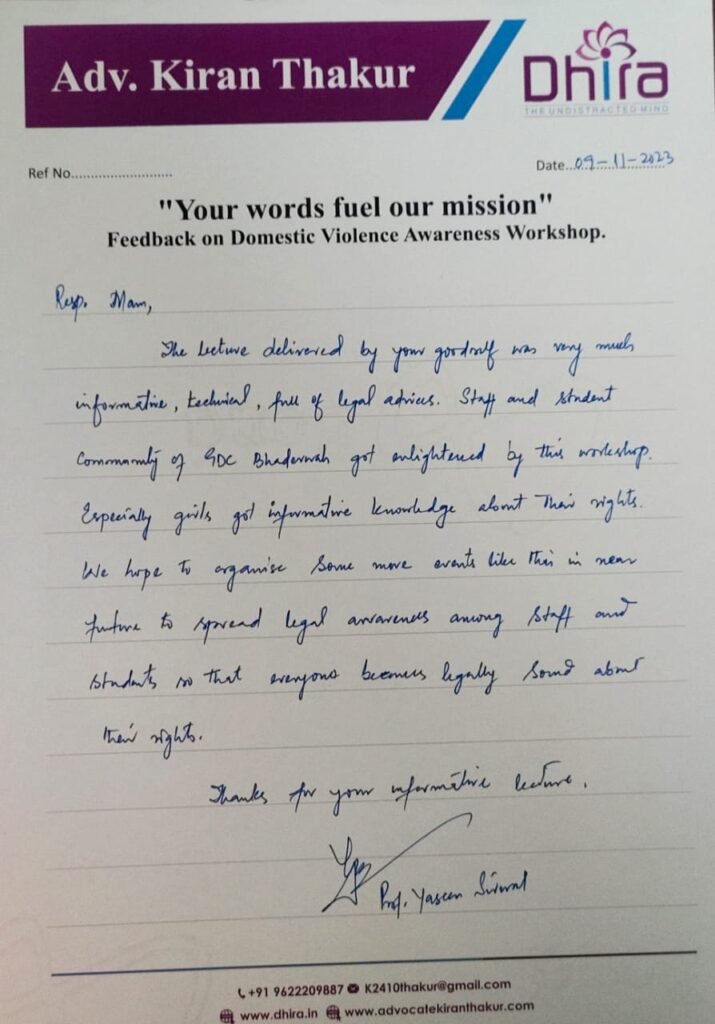 Adv. Kiran Thakur
Dhira
THE UNDISTRACTED MIND
Ref No..........................
Date...09-11-2023
"Your words fuel our mission"
Feedback on Domestic Violence Awareness Workshop.
Resp. Mam,
The lecture delivered by your goodself was very much
informative, technical, full of legal advices. Staff and student
Community of GDC Bhaderwah got enlightened by this workshop.
Especially girls got informative knowledge about their rights.
We hope to organise some more events like this in near
future to spread legal awareness among staff and
students so that everyone becomes legally sound about
their rights.
Thanks for your informative lecture.
Prof. Yaseen
+91 9622209887 K2410thakur@gmail.com
www.dhira.in www.advocatekiranthakur.com